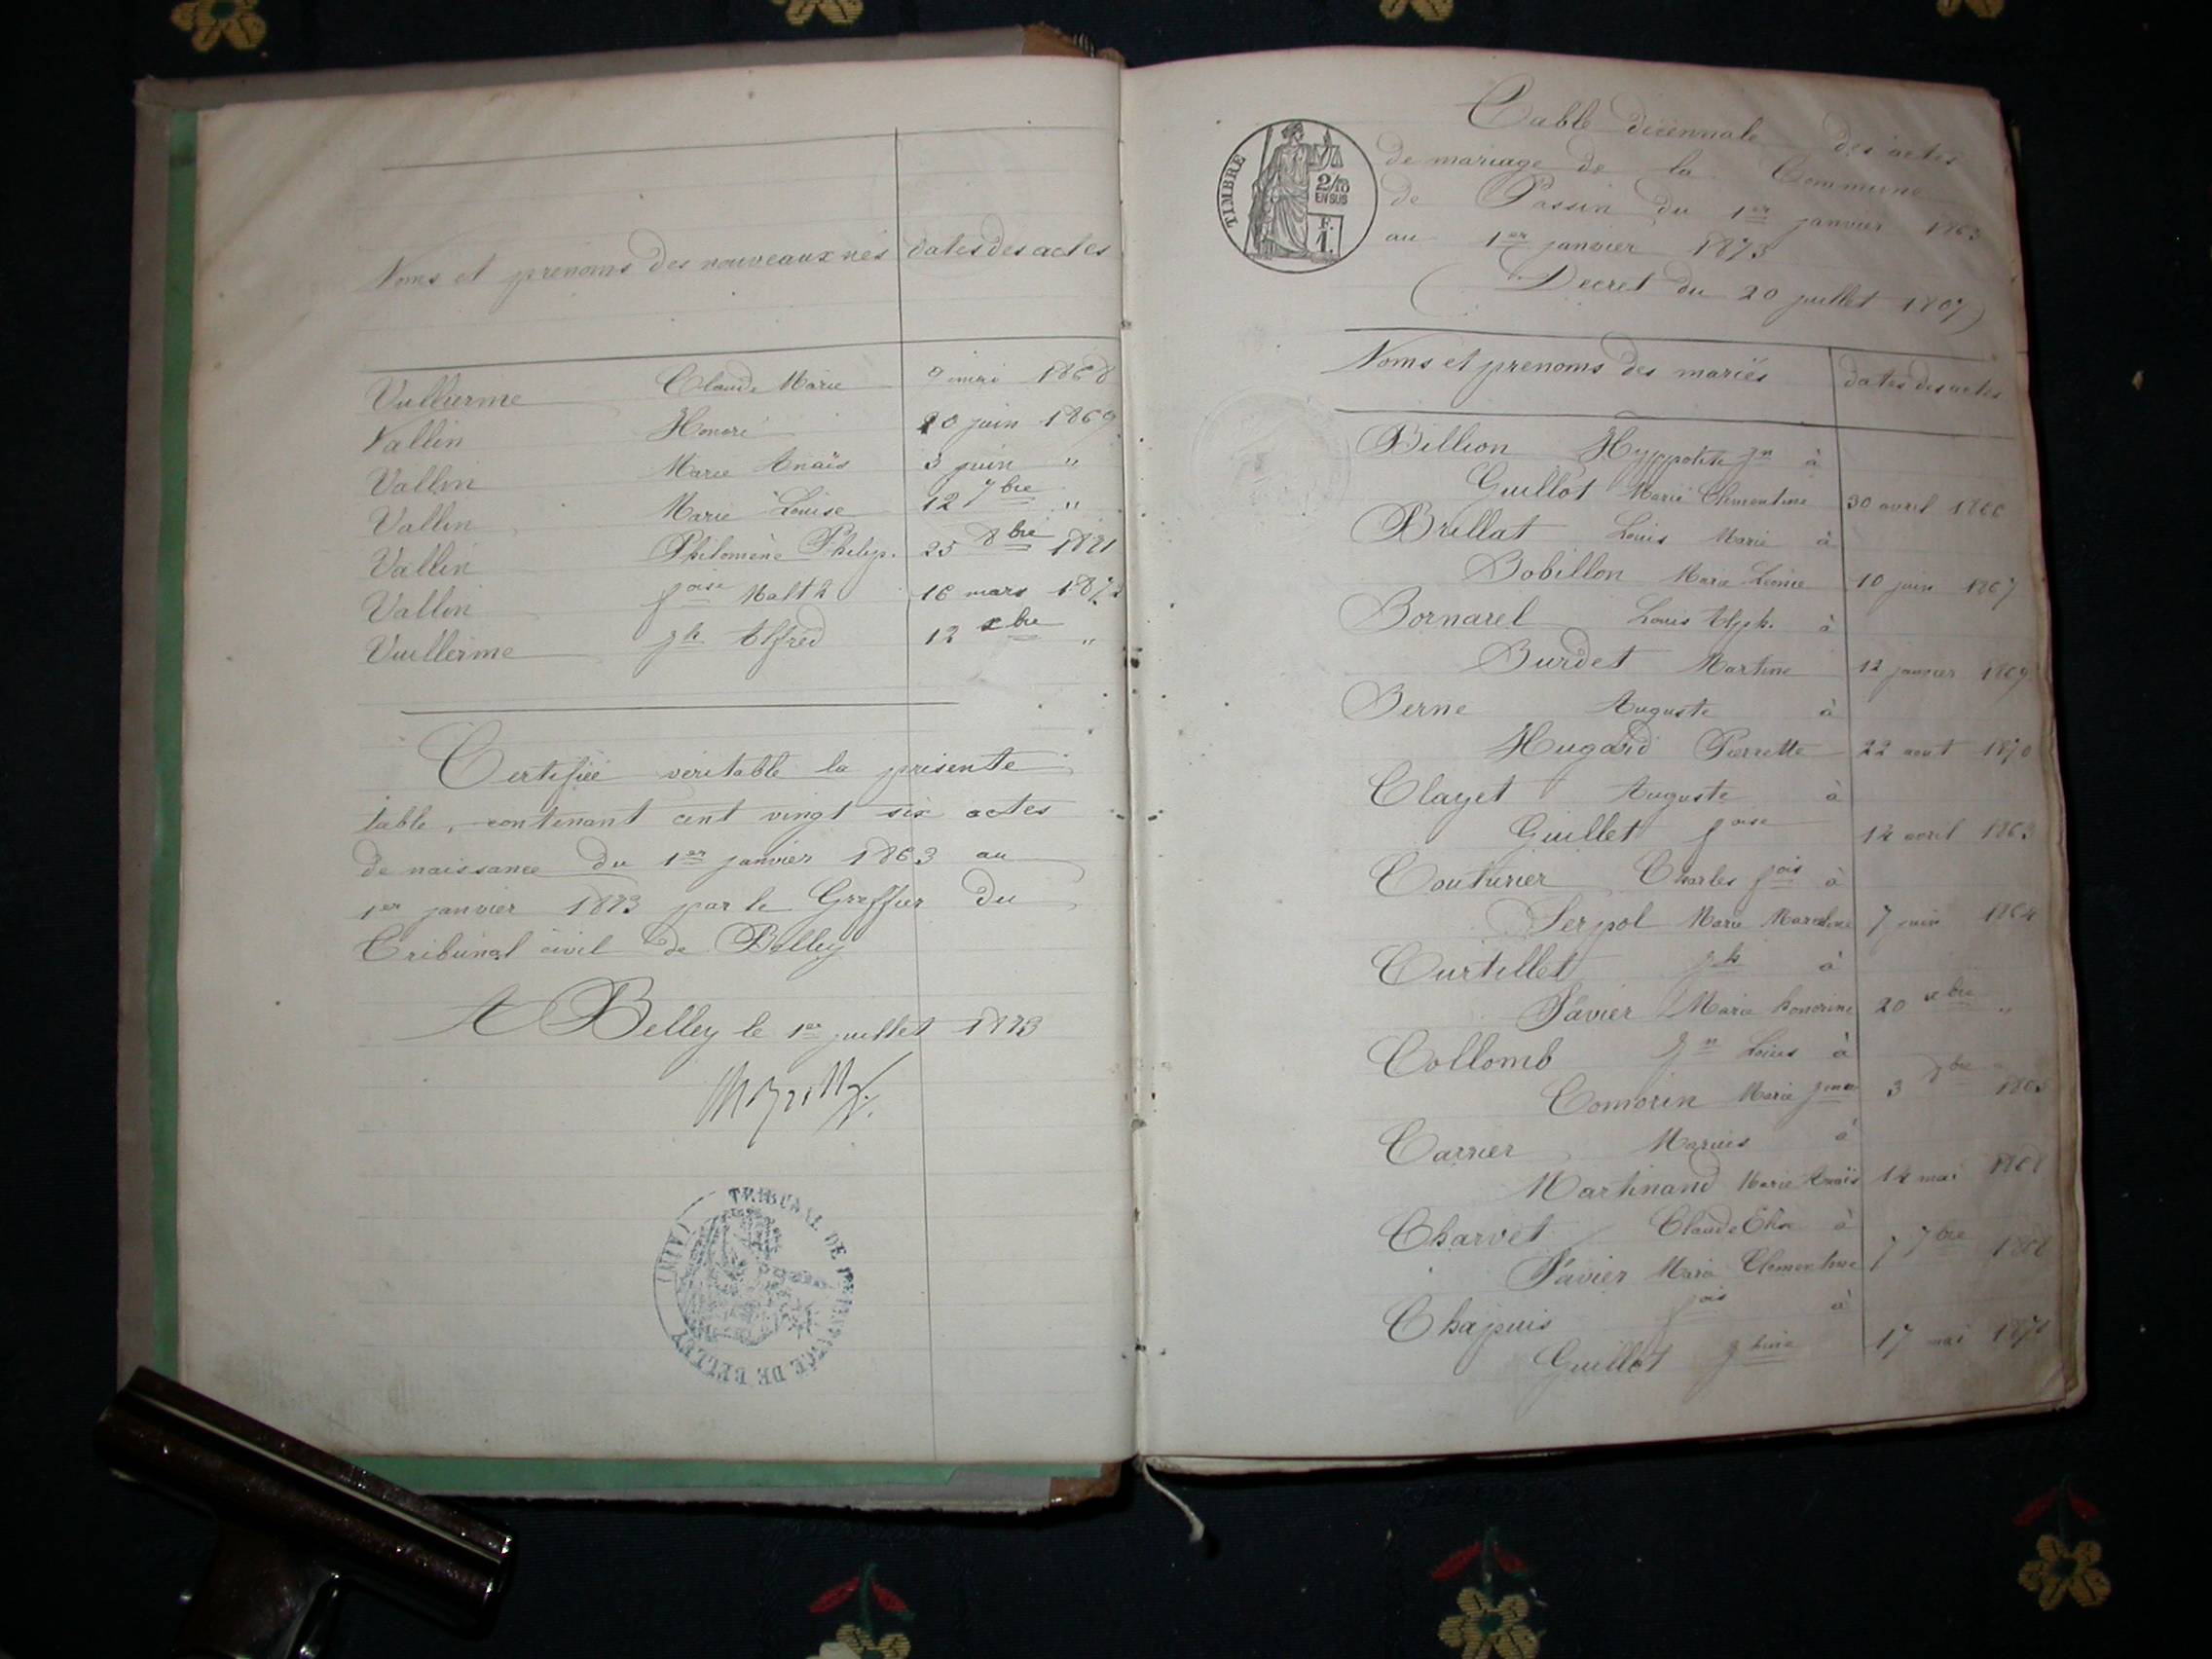 Noms et prenoms des nouveaux nés dates des actes
Vullierme Claude Marie 9 1868
Vallin Honoré 20 juin 1869
Vallin Marie Anaïs 3 juin "
Vallin Marie Louise 12 7bre "
Vallin Philomène Philip. 25 8bre 1871
Vallin foise 16 mars 1872
Vuillerme jh Alfred 12 xbre "
Certifiée véritable la présente
table, contenant cent vingt six actes
de naissance du 1er janvier 1863 au
1er janvier 1873 par le Greffier du
Tribunal civil de Belley
A Belley le 1er juillet 1873
TRIBUNAL DE 1ERE INSTANCE DE BELLEY (AIN)
TIMBRE
2/10
EN SUS
F.
1.
Table décennale des actes
de mariage de la Commune
de Passin du 1er janvier 1863
au 1er janvier 1873
(Decret du 20 juillet 1807)
Noms et prenoms des mariés dates des actes
Billion Hyppolite jn à
Guillot Marie Clementine 30 avril 1866
Brillat Louis Marie à
Bobillon Marie Léonie 10 juin 1867
Bornarel Louis Alph. à
Burdet Martine 12 janvier 1869
Berne Auguste à
Hugard Pierrette 22 aout 1870
Clayet Auguste à
Guillet foise 14 avril 1863
Couturier Charles fois à
Serpol Marie 7 juin 1864
Curtillet jh à
Savier Marie honorine 20 xbre "
Collomb jn Louis à
Comorin Marie 3 8bre 1865
Carrier Marius à
Martinand Marie Anaïs 14 mai 1868
Charvet Claude à
Savier Marie Clementine 7 7bre 1868
Chapuis fois à
Guillot jhine 17 mai 1871